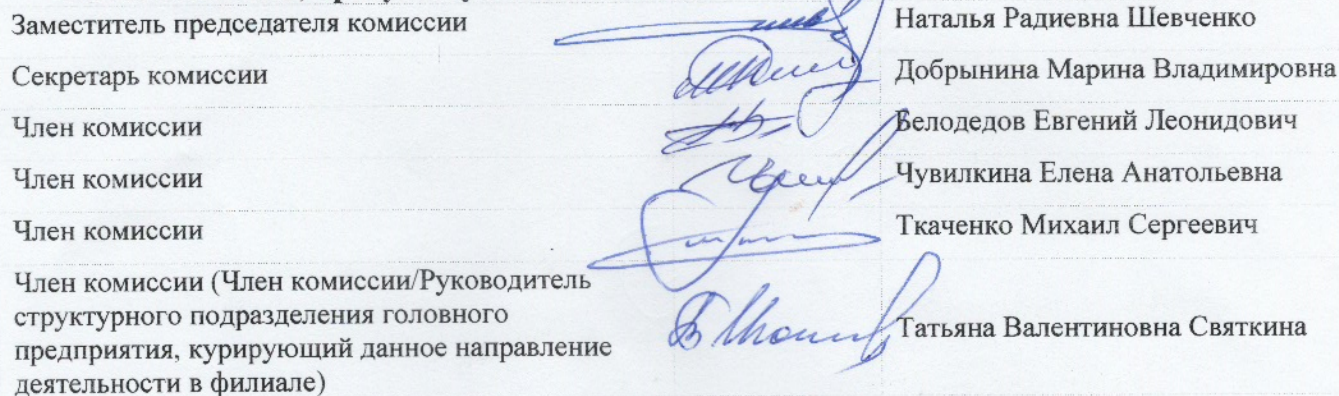 Заместитель председателя комиссии Наталья Радиевна Шевченко
Секретарь комиссии Добрынина Марина Владимировна
Член комиссии Белодедов Евгений Леонидович
Член комиссии Чувилкина Елена Анатольевна
Член комиссии Ткаченко Михаил Сергеевич
Член комиссии (Член комиссии/Руководитель
структурного подразделения головного
предприятия, курирующий данное направление
деятельности в филиале) Татьяна Валентиновна Святкина